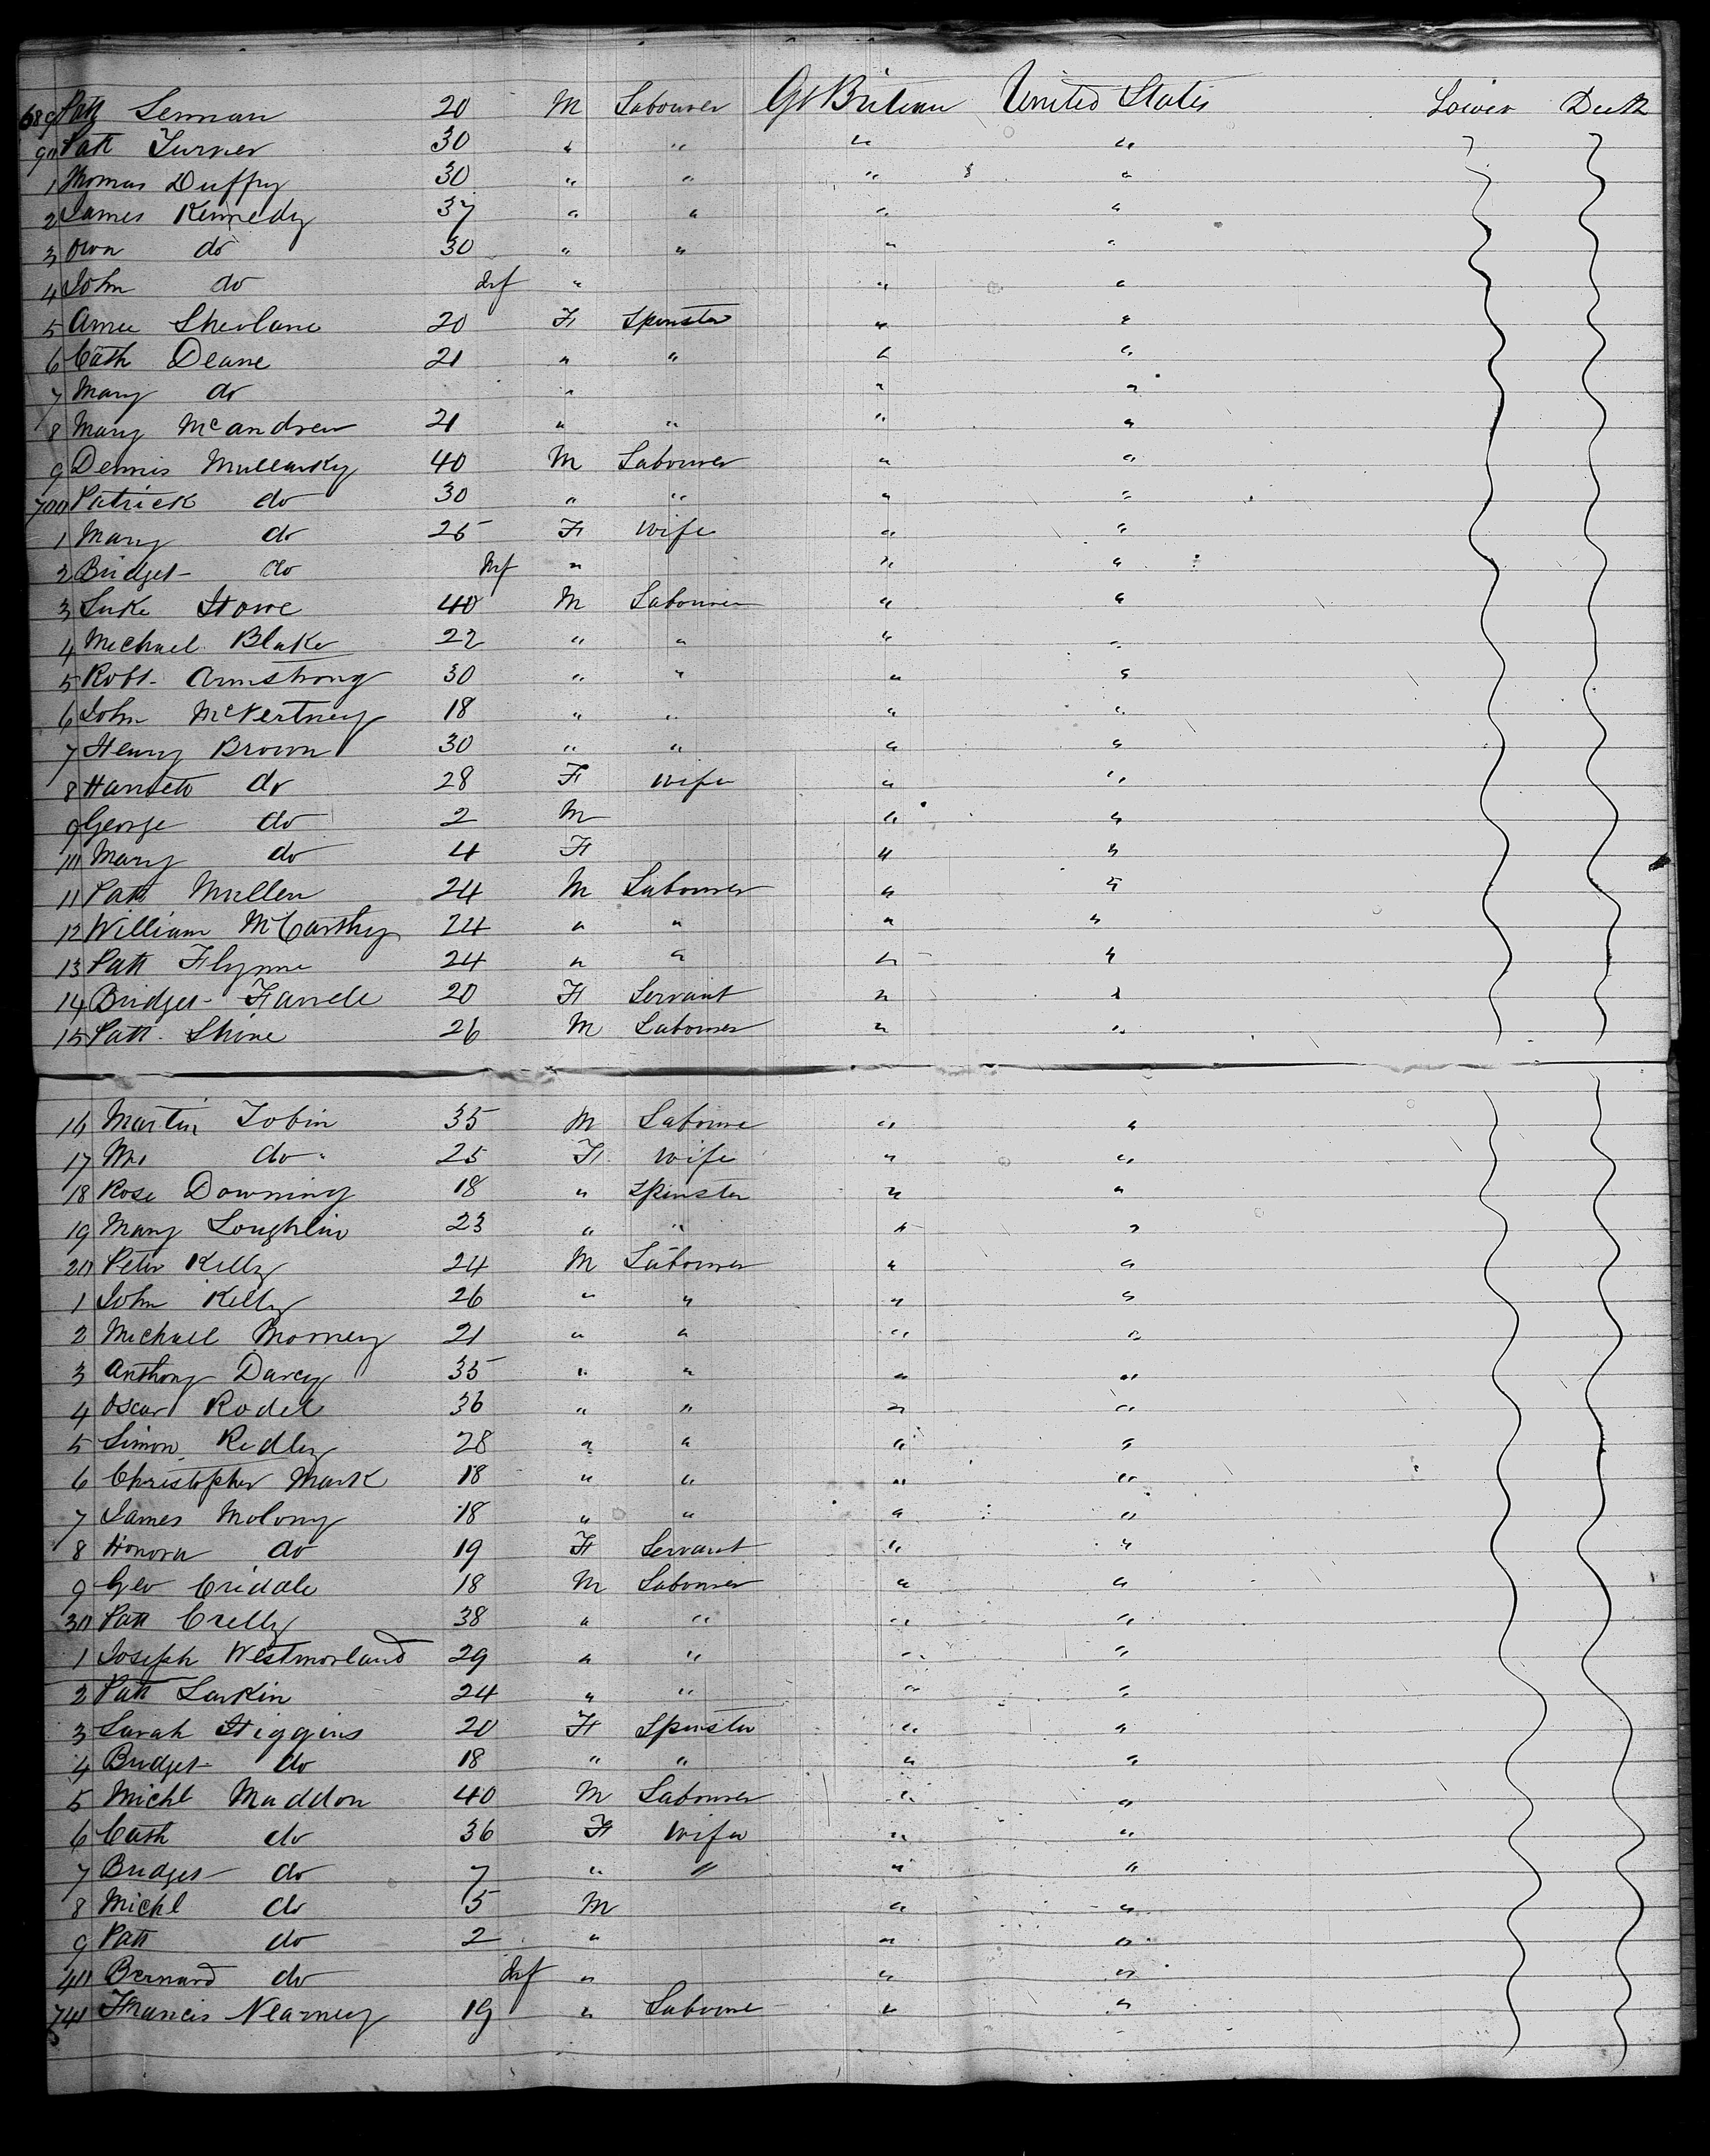 689 Patt Lennan 20 M Labourer Gt Britain United States Lower Deck
90 Patt Turner 30 " " " "
1 Thomas Duffry 30 " " " "
2 James Kennedy 37 " " " "
3 Own do 30 " " " "
4 John do Inf " " "
5 Anne Shevlane 20 F Spinster " "
6 Cath Deane 21 " " " "
7 Mary do " " "
8 Mary McAndrew 21 " " " "
9 Dennis Mullarky 40 M Labourer " "
700 Patrick do 30 " " " "
1 Mary do 25 F Wife " "
2 Bridget do Inf " " "
3 Luke Howe 40 M Labourer " "
4 Michael Blake 22 " " " "
5 Robt. Armstrong 30 " " " "
6 John McVertney 18 " " " "
7 Henry Brown 30 " " " "
8 do 28 F Wife " "
9 George do 2 M " "
10 Mary do 4 F " "
11 Patt Mullen 24 M Labourer " "
12 William McCarthy 24 " " " "
13 Patt Flynne 24 " " " "
14 Bridget Farrele 20 F Servant " "
15 Patt. Shine 26 M Labourer " "
16 Martin Tobin 35 M Laboure " "
17 Mrs do 25 F Wife " "
18 Rose Downing 18 " Spinster " "
19 Mary Loughlin 23 " " " "
20 Peter Kelly 24 M Labourer " "
1 John Kelly 26 " " " "
2 Michael Morney 21 " " " "
3 Anthony Darcy 35 " " " "
4 Oscar Rodel 36 " " " "
5 Simon Redley 28 " " " "
6 Christopher Mark 18 " " " "
7 James Molony 18 " " " "
8 Honora do 19 F Servant " "
9 Geo Criddle 18 M Labourer " "
30 Patt Crelly 38 " " " "
1 Joseph Westmorland 29 " " " "
2 Patt Larkin 24 " " " "
3 Sarah Higgins 20 F Spinster " "
4 Bridget do 18 " " " "
5 Michl Maddon 40 M Labourer " "
6 Cath do 36 F Wife " "
7 Bridget do 7 " " " "
8 Michl do 5 M " "
9 Patt do 2 " " "
40 Bernard do Inf " " "
741 Francis Nearney 19 " Laboure " "